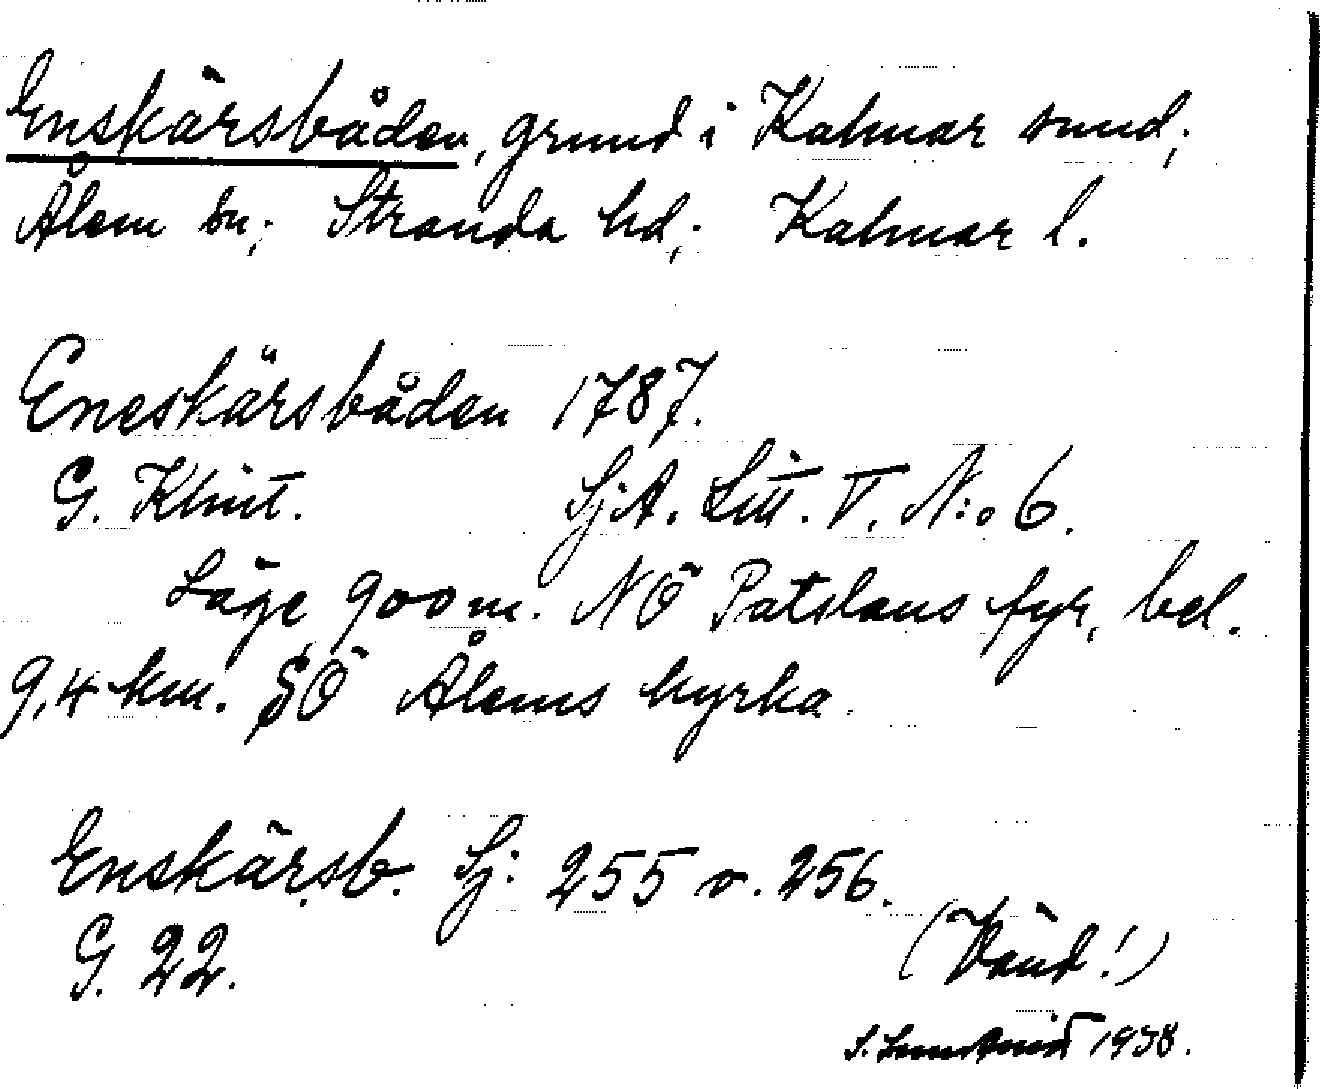 Enskärsbåden, grund i Kalmar sund;
Ålem sn; Stranda hd; Kalmar l.
Eneskärsbåden 1787.
G. Klint. SjA. Litt. V. N:o 6.
Läge 900 m. NÖ Patslaus fyr, bel.
9,4 km. SÖ Ålems kyrka.
Enskärsb. Sj: 255 o. 256.
G. 22.
(Vänd!)
S. 1938.